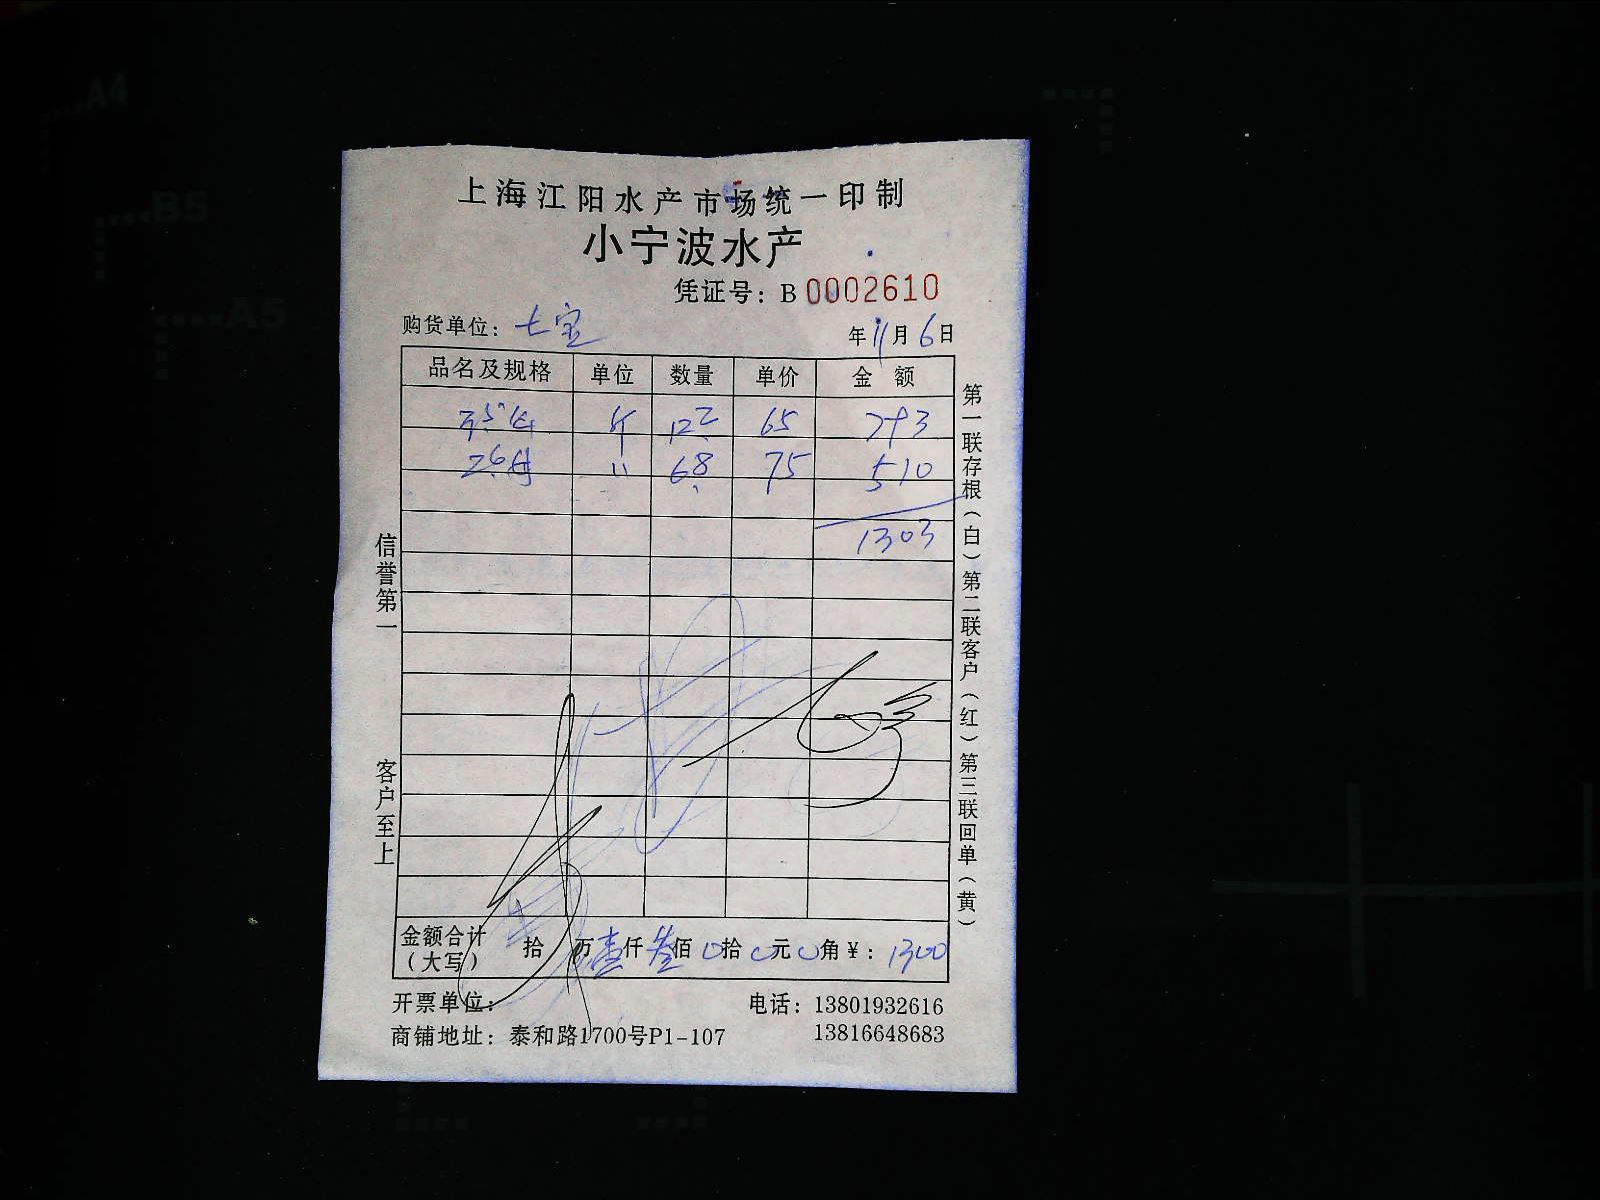 上海江阳水产市场统一印制
小宁波水产
凭证号：B 0002610
购货单位：七宝 年11月6日
品名及规格 单位 数量 单价 金额
3.5 斤 12.2 65 793
2.6母 〃 6.8 75 510
1303
信誉第一
客户至上
第一联存根（白）第二联客户（红）第三联回单（黄）
金额合计（大写） 拾 万壹仟叁佰0拾0元0角￥：1300
开票单位： 电话：13801932616
商铺地址：泰和路1700号P1-107 13816648683
A4
B5
A5